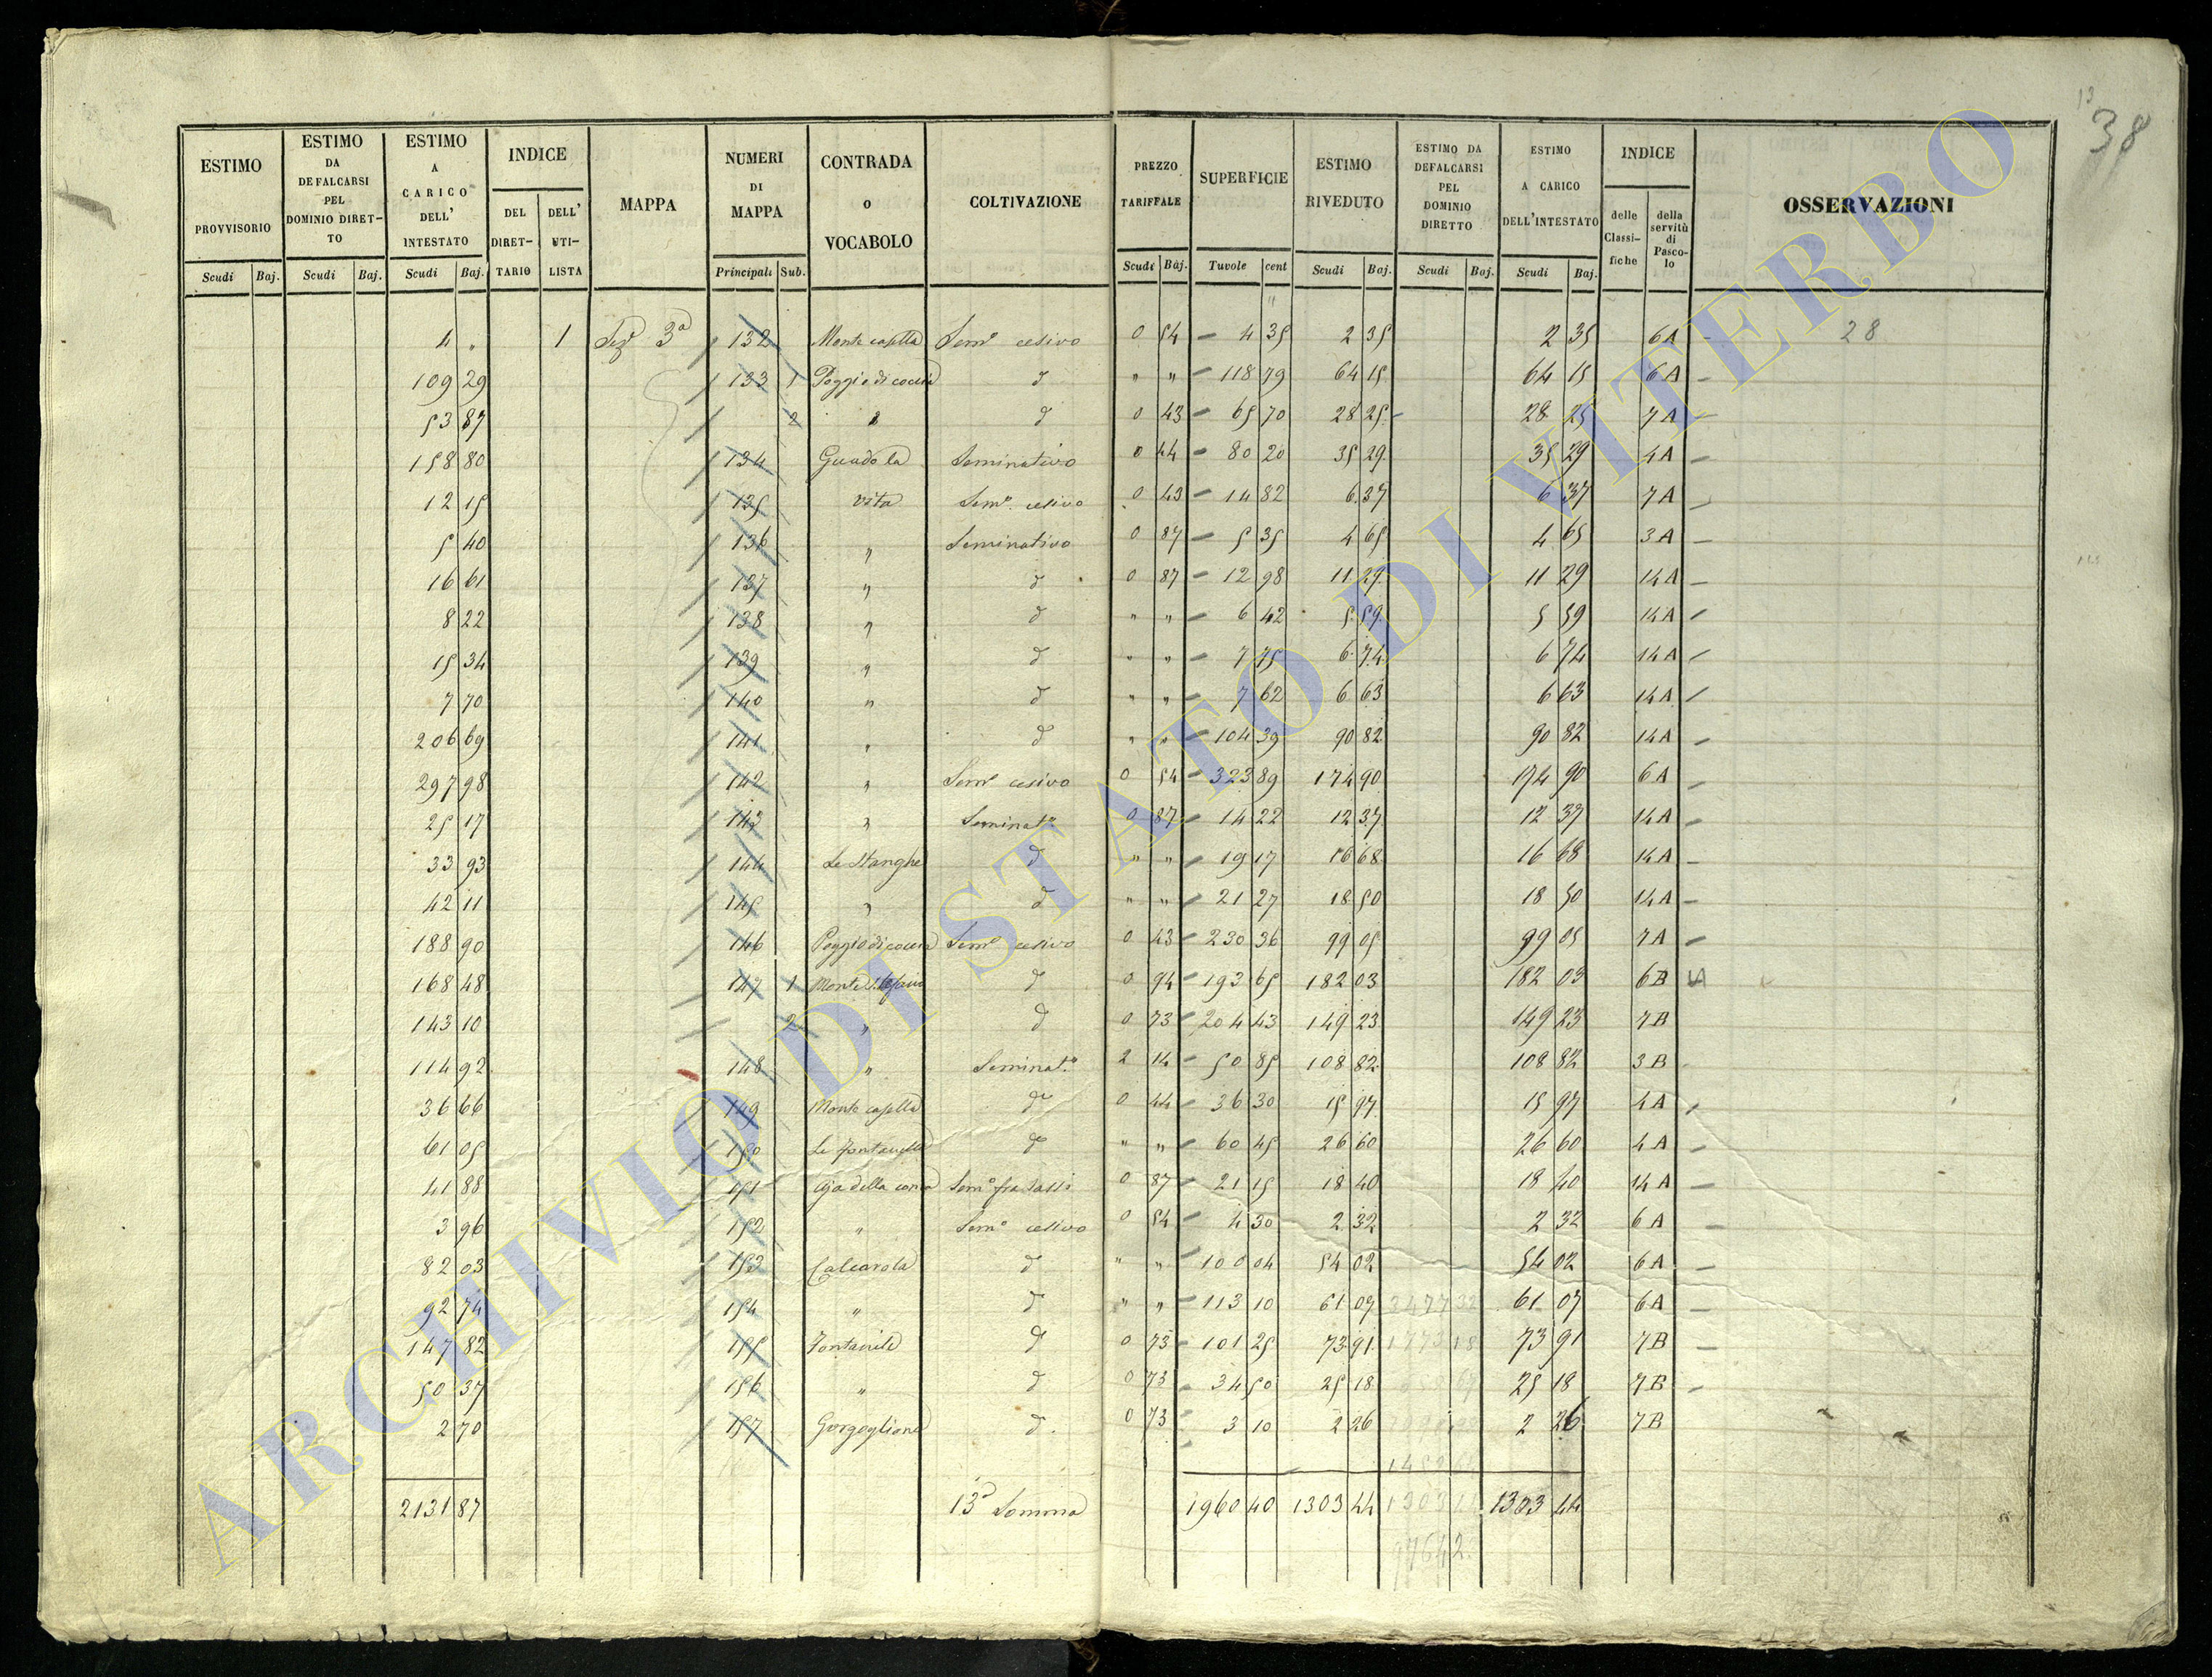 13
38
ESTIMO PROVVISORIO | ESTIMO DA DEFALCARSI PEL DOMINIO DIRETTO | ESTIMO A CARICO DELL' INTESTATO | INDICE DEL DIRETTARIO | DELL' UTILISTA | MAPPA | NUMERI DI MAPPA | CONTRADA O VOCABOLO | COLTIVAZIONE | PREZZO TARIFFALE | SUPERFICIE | ESTIMO RIVEDUTO | ESTIMO DA DEFALCARSI PEL DOMINIO DIRETTO | ESTIMO A CARICO DELL'INTESTATO | INDICE delle Classifiche | della servitù di Pascolo | OSSERVAZIONI
Scudi Baj. | Scudi Baj. | Scudi Baj. | Principali Sub. | Scudi Baj. | Tavole cent | Scudi Baj. | Scudi Baj. | Scudi Baj.
4 " 1 Sez 3a 132 Monte casella Semo cesivo 0 54 4 35 2 35 2 35 6A 28
109 29 133 1 Poggio di coccia d " " 118 79 64 15 64 15 6A
53 87 2 " d 0 43 65 70 28 25 28 25 7A
158 80 134 Guado la Seminativo 0 44 80 20 35 29 35 29 4A
12 15 135 vita Semo. cesivo 0 43 14 82 6 37 6 37 7A
5 40 136 " Seminativo 0 87 5 35 4 65 4 65 3A
16 61 137 " d 0 87 12 98 11 29 11 29 14A
8 22 138 " d " " 6 42 5 59 5 59 14A
15 34 139 " d " " 7 75 6 74 6 74 14A
7 70 140 " d " " 7 62 6 63 6 63 14A
206 69 141 " d " " 104 39 90 82 90 82 14A
297 98 142 " Semo cesivo 0 54 323 89 174 90 174 90 6A
25 17 143 " Seminato 0 87 14 22 12 37 12 37 14A
33 93 144 Le Stanghe d " " 19 17 16 68 16 68 14A
42 11 145 " d " " 21 27 18 50 18 50 14A
188 90 146 Poggio di coccia Semo cesivo 0 43 230 36 99 05 99 05 7A
168 48 147 1 Monte d 0 94 193 65 182 03 182 03 6B
143 10 2 " d 0 73 204 43 149 23 149 23 7B
114 92 148 " Seminato. 2 14 50 85 108 82 108 82 3B
36 66 149 Monte casella d 0 44 36 30 15 97 15 97 4A
61 05 150 Le fontanelle d " " 60 45 26 60 26 60 4A
41 88 151 Aja della conca Semo fra sassi 0 87 21 15 18 40 18 40 14A
3 96 152 " Semo cesivo 0 54 4 30 2 32 2 32 6A
82 03 153 Calcarola d " " 100 04 54 02 54 02 6A
92 74 154 " d " " 113 10 61 07 61 07 6A
147 82 155 Fontanile d 0 73 101 25 73 91 73 91 7B
50 37 156 " d 0 73 34 50 25 18 25 18 7B
2 70 157 Gorgoglione d. 0 73 3 10 2 26 2 26 7B
2131 87 13a Somma 1960 40 1303 44 1303 44
97642
ARCHIVIO DI STATO DI VITERBO